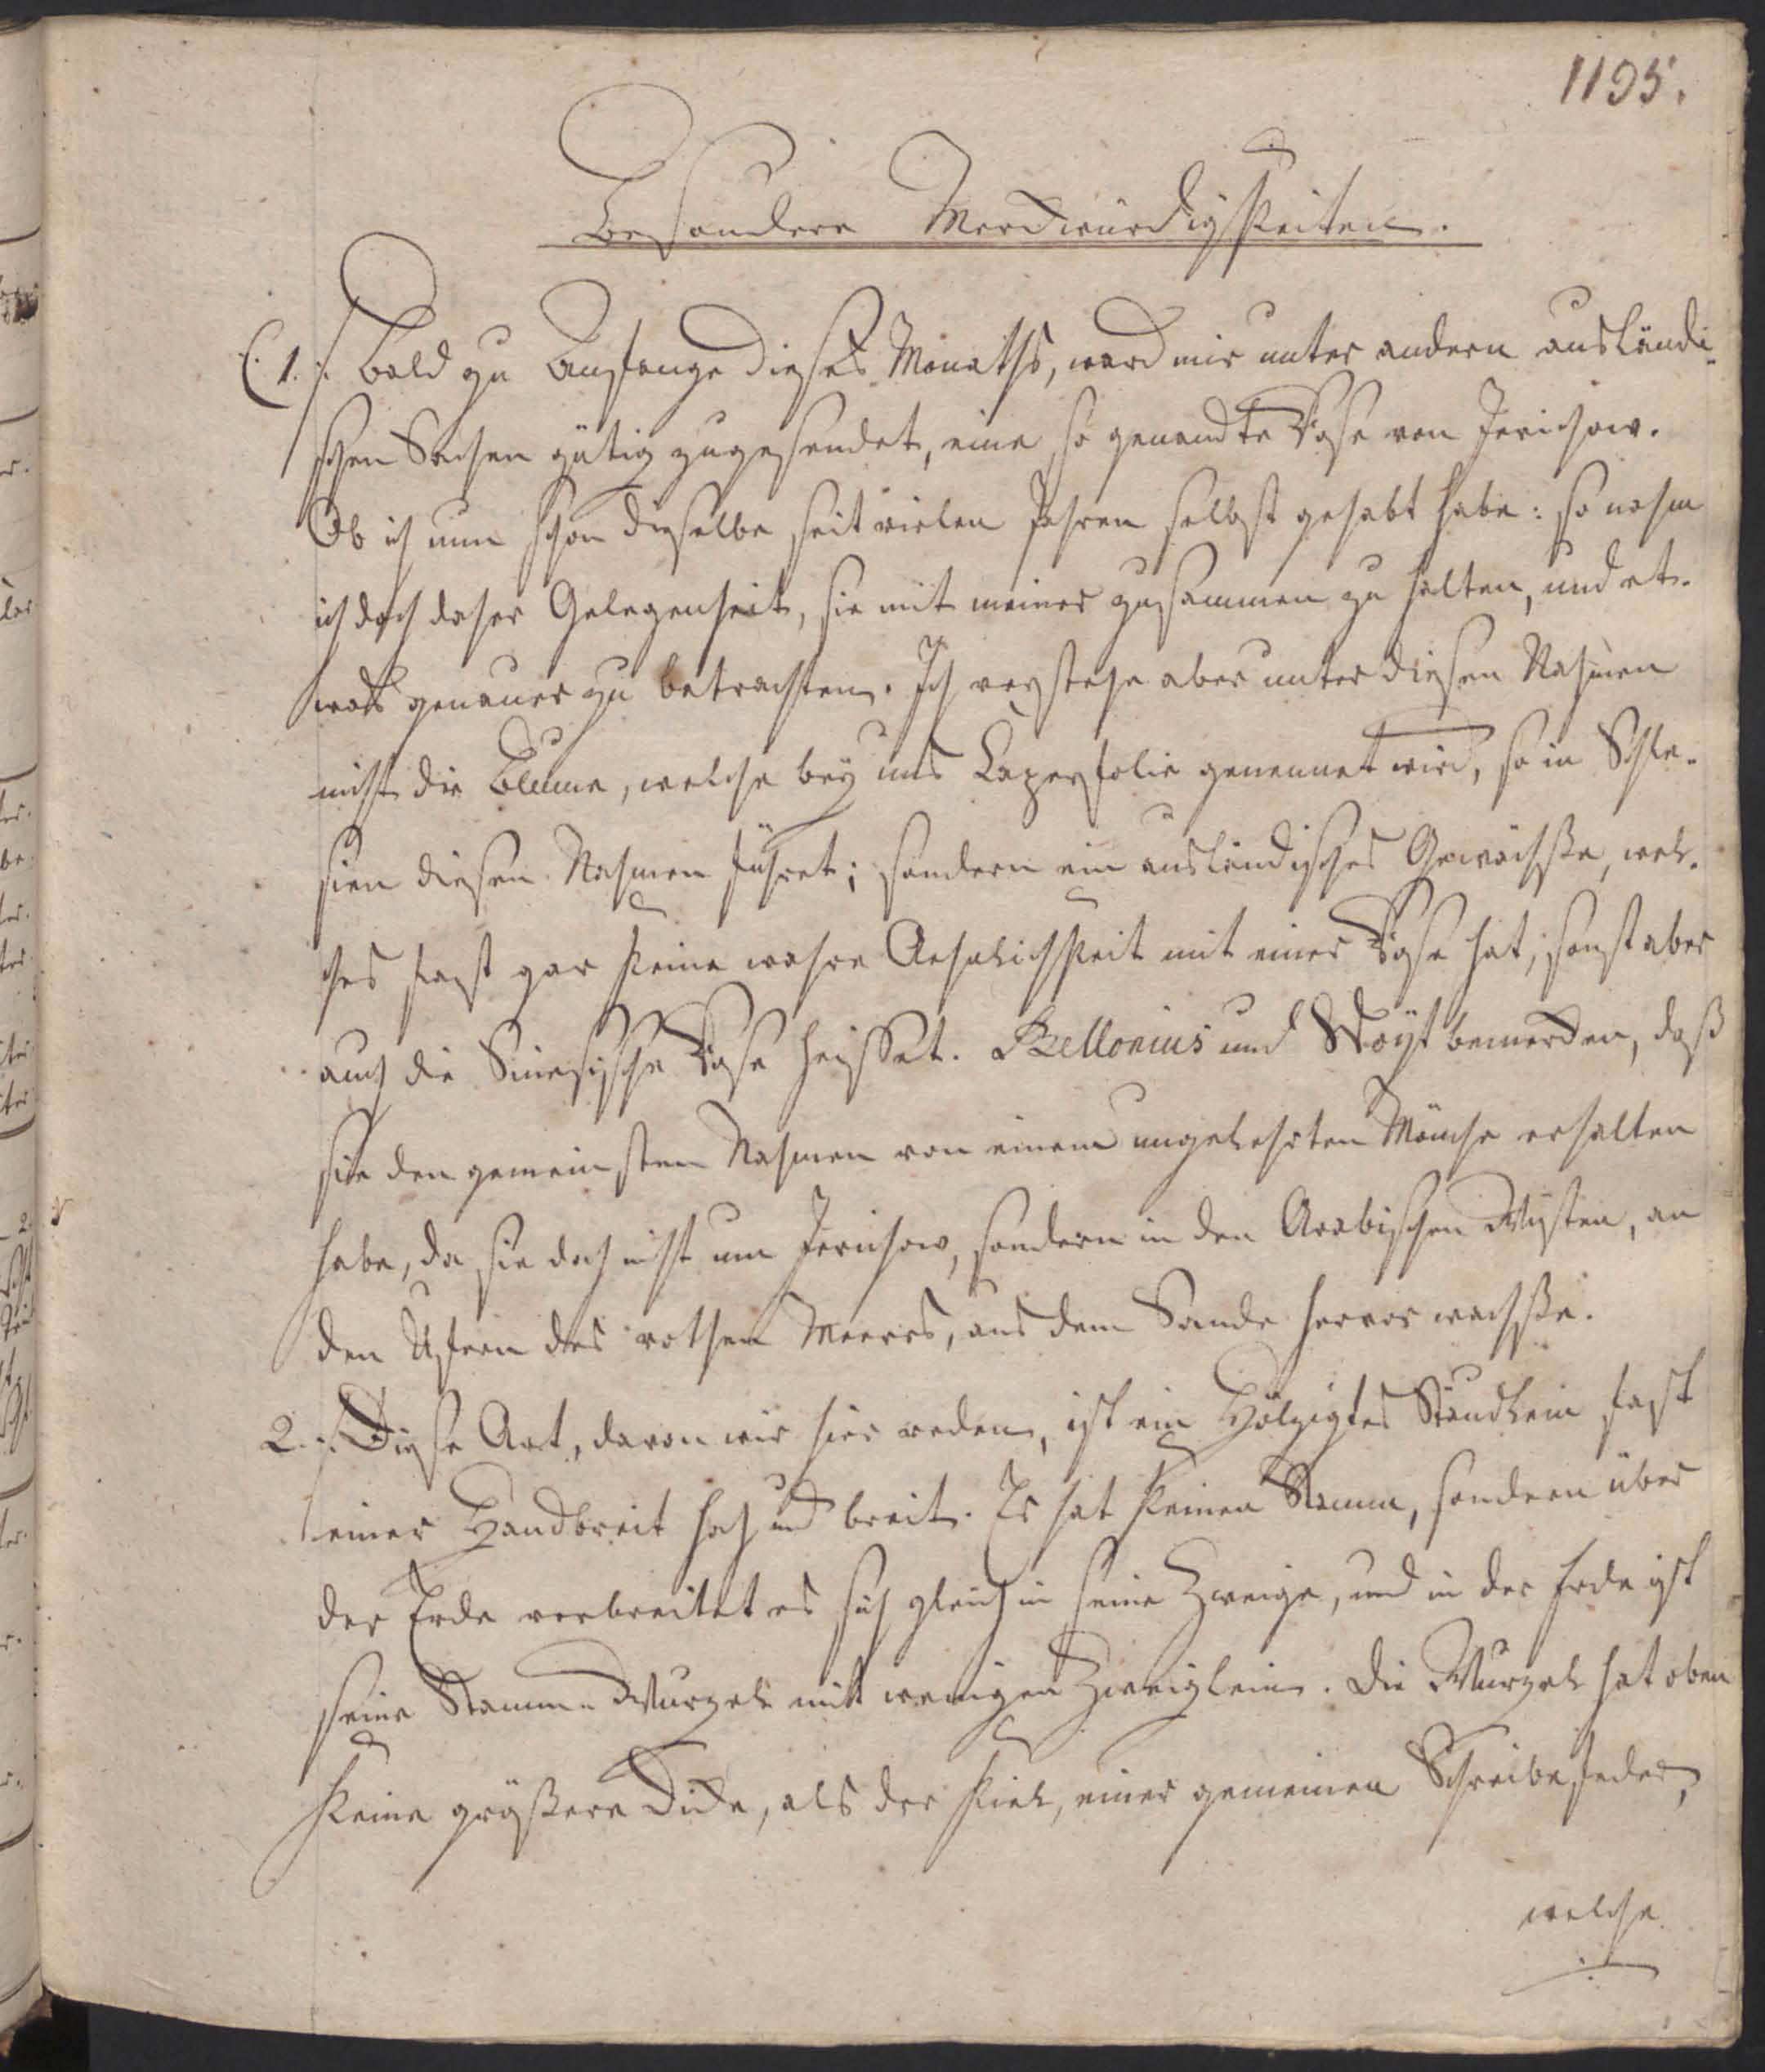 1195.
Besondere Merckwürdigkeiten.
C. 1. :/. Bald zu Anfange dieses Monaths, ward mir unter andern ausländi-
schen Sachen gütig zugesendet, eine so genandte Rose von Jerichow.
Ob ich nun schon dieselbe seit vielen Jahren selbst gehabt habe: so nahm
ich doch daher Gelegenheit, sie mit meiner zusammen zu halten, und et-
was genauer zu betrachten. Ich verstehe aber unter diesen Nahmen
nicht die Blume, welche bey uns Caperfolie genennet wird, so in Schle-
sien diesen Nahmen führet; sondern ein ausländisches Gewächße, wel-
ches fast gar keine wahre Aehnlichkeit mit einer Rose hat, sonst aber
auch die Sinesische Rose heisset. Bellonius und Woyt bemercken, daß
sie den gemeinsten Nahmen von einem ungelehrten Mönche erhalten
habe, da sie doch nicht um Jerichow, sondern in den Arabischen Wüsten, an
den Ufern des rothen Meeres, aus dem Sande hervor wachße.
2. :/. Diese Art, davon wir hier reden, ist ein Höltzigtes Stäudlein fast
einer Handbreit hoch und breit. Es hat keinen Stamm, sondern über
der Erde verbreitet es sich gleich in seine Zweige, und in der Erde ist
seine Stamm-Wurzel mit wenigen Zweiglein. Die Wurzel hat oben
keine größere Dicke, als der Kiel, einer gemeinen Schreibefeder,
welche